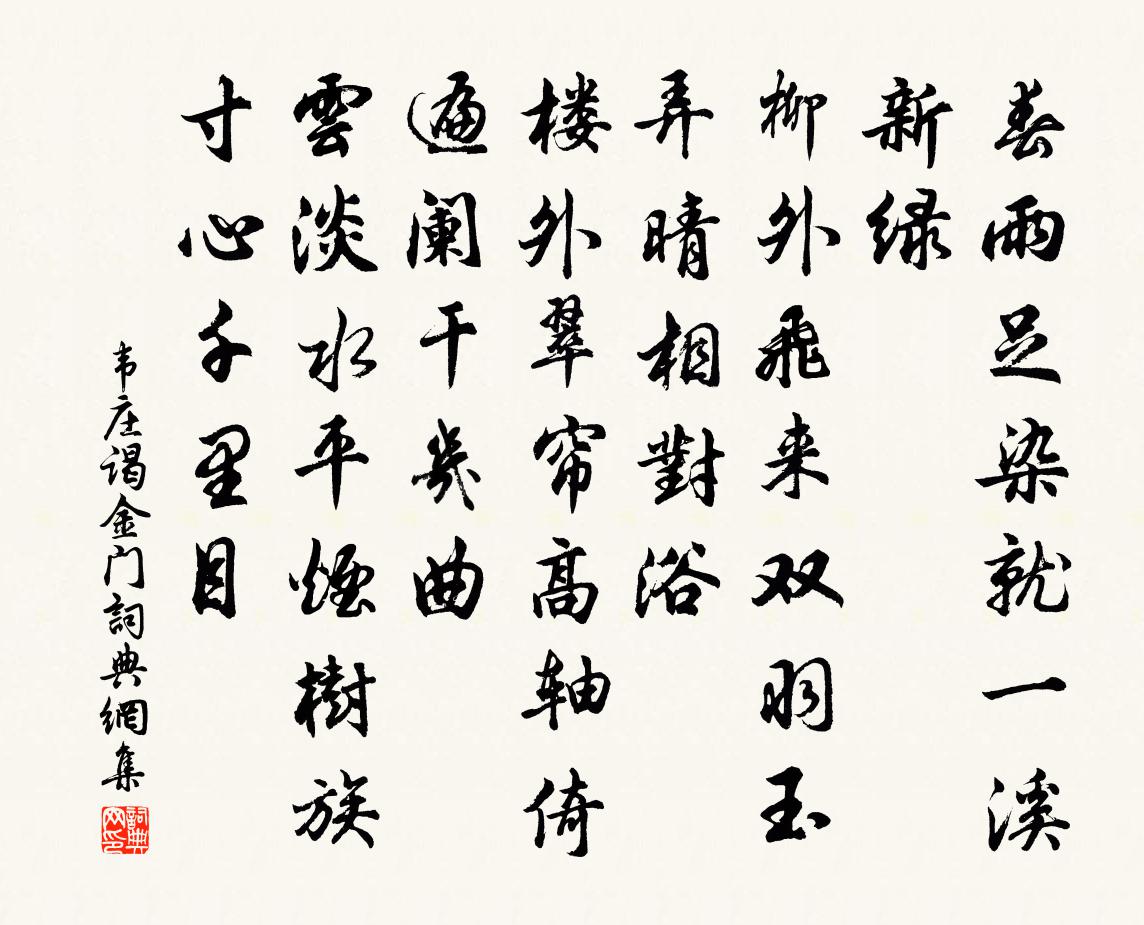 春雨足染就一溪
新绿
柳外飛来双羽玉
弄晴相對浴
楼外翠帘高轴倚
遍阑干幾曲
雲淡水平煙樹族
寸心千里目
韦庄谒金门詞典網集
詞典网印